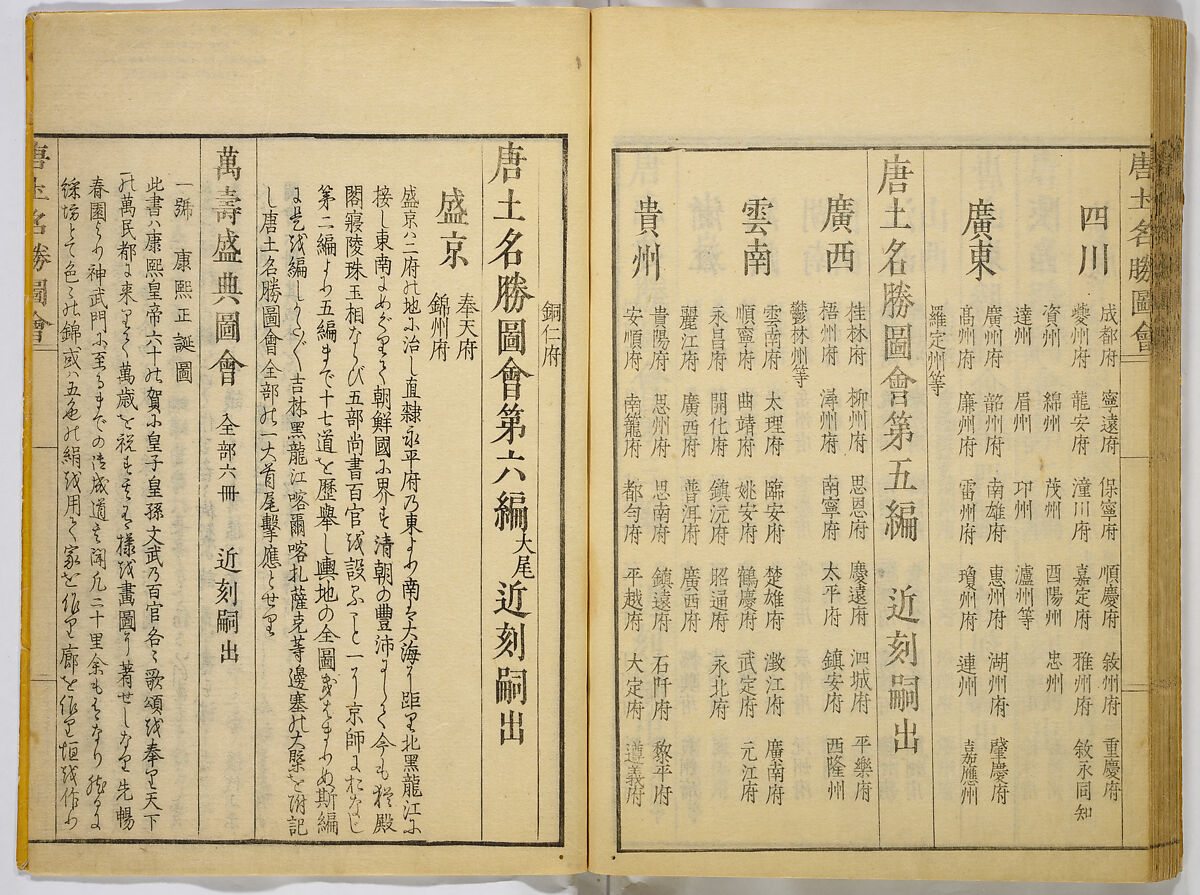 唐土名勝圖會
四川
成都府 寧遠府 保寧府 順慶府 敘州府 重慶府
夔州府 龍安府 潼川府 嘉定府 雅州府 敘永同知
資州 綿州 茂州 酉陽州 忠州
達州 眉州 邛州 瀘州等
廣東
廣州府 韶州府 南雄府 惠州府 湖州府 肇慶府
髙州府 廉州府 雷州府 瓊州府 連州 嘉應州
羅定州等
唐土名勝圖會第五編 近刻嗣出
廣西
桂林府 柳州府 思恩府 慶遠府 泗城府 平樂府
梧州府 潯州府 南寧府 太平府 鎮安府 西隆州
鬱林州等
雲南
雲南府 大理府 臨安府 楚雄府 澂江府 廣南府
順寧府 曲靖府 姚安府 鶴慶府 武定府 元江府
永昌府 開化府 鎮沅府 昭通府 永北府
麗江府 廣西府 普洱府 廣西府
貴州
貴陽府 思州府 思南府 鎮遠府 石阡府 黎平府
安順府 南籠府 都勻府 平越府 大定府 遵義府
銅仁府
唐土名勝圖會第六編大尾 近刻嗣出
盛京
奉天府
錦州府
盛京ハ二府の地に治し直隷永平府乃東より南は大海に距り北黒龍江に
接し東南にめぐりて朝鮮國に界す清朝の豐沛にして今も猶殿
閣寢陵珠玉相ならび五部尚書百官を設ること一に京師におなじ
第二編より五編まで十七道を歴舉し輿地の全圖
吉林黑龍江喀爾喀札薩克等邊塞の大槩を附記
し唐土名勝圖會全部の一大首尾擊應とせり
萬壽盛典圖會 全部六冊 近刻嗣出
一號 康熙正誕圖
此書ハ康熙皇帝六十の賀に皇子皇孫文武乃百官各〻歌頌を奉り天下
の萬民都に来りて萬歳を祝す 様を畫圖に著せしなり先暢
春園より神武門に至るまでの 凡二十里余もあり
綵坊とて色〻の錦或ハ五色の絹を用て家を作り廊を作り垣を作り
唐土名勝圖會